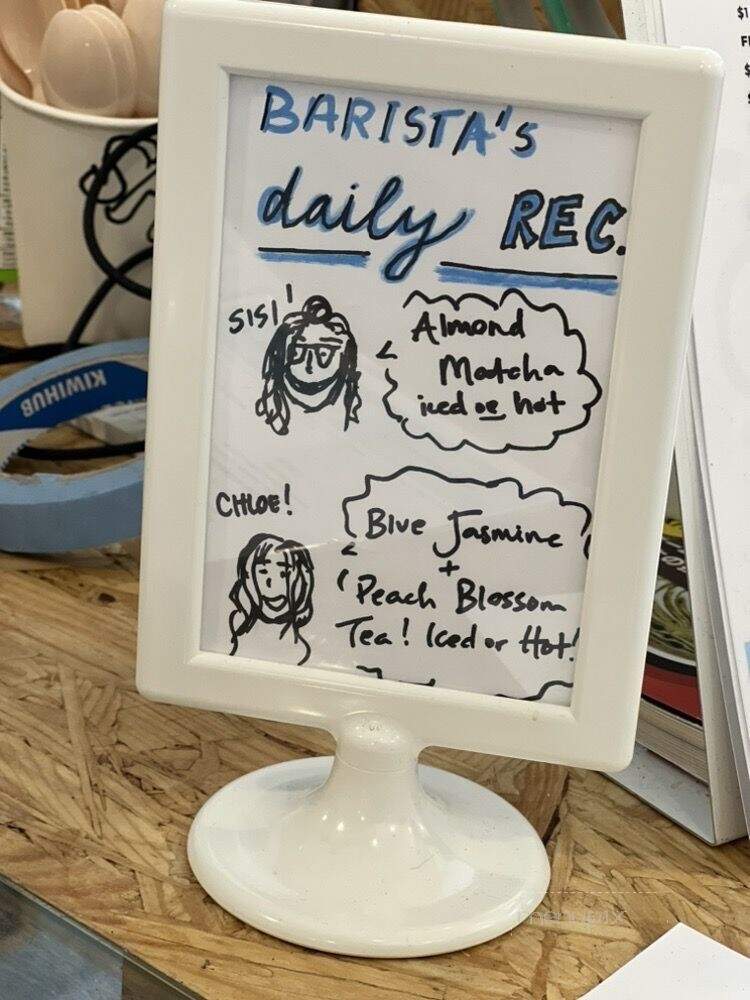 BARISTA's
daily REC.
SISI!
Almond
Matcha
iced or hot
CHLOE!
Blue Jasmine
+
Peach Blossom
Tea! Iced or Hot!
KIWIHUB
$1